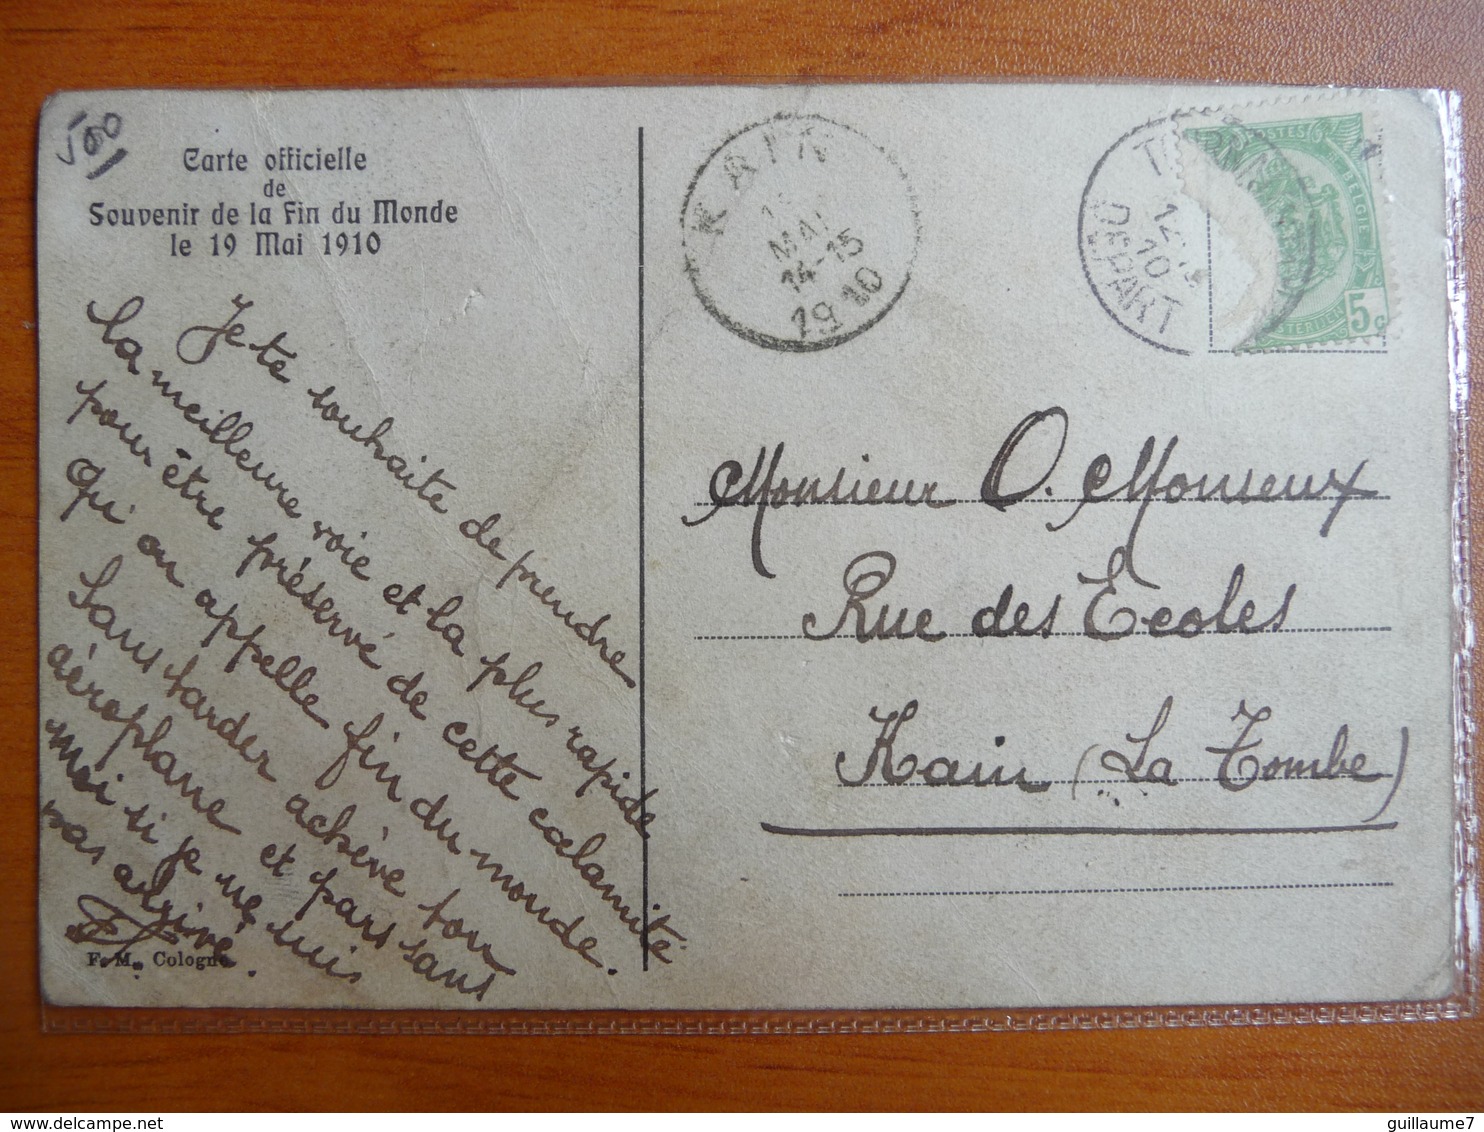 500
Carte officielle
de
Souvenir de la Fin du Monde
le 19 Mai 1910
Je te souhaite de prendre
la meilleure voie et la plus rapide
pour être préservé de cette calamité
qu'on appelle fin du monde.
Sans tarder achève ton
aéroplane et pars sans
moi si je ne suis
pas arrivé.
F. M. Cologne
KAIN
MAI
14-15
1910
DEPART
10
POSTES
BELGIE
5c
Monsieur O. Monseux
Rue des Ecoles
Kain (La Tombe)
guillaume7